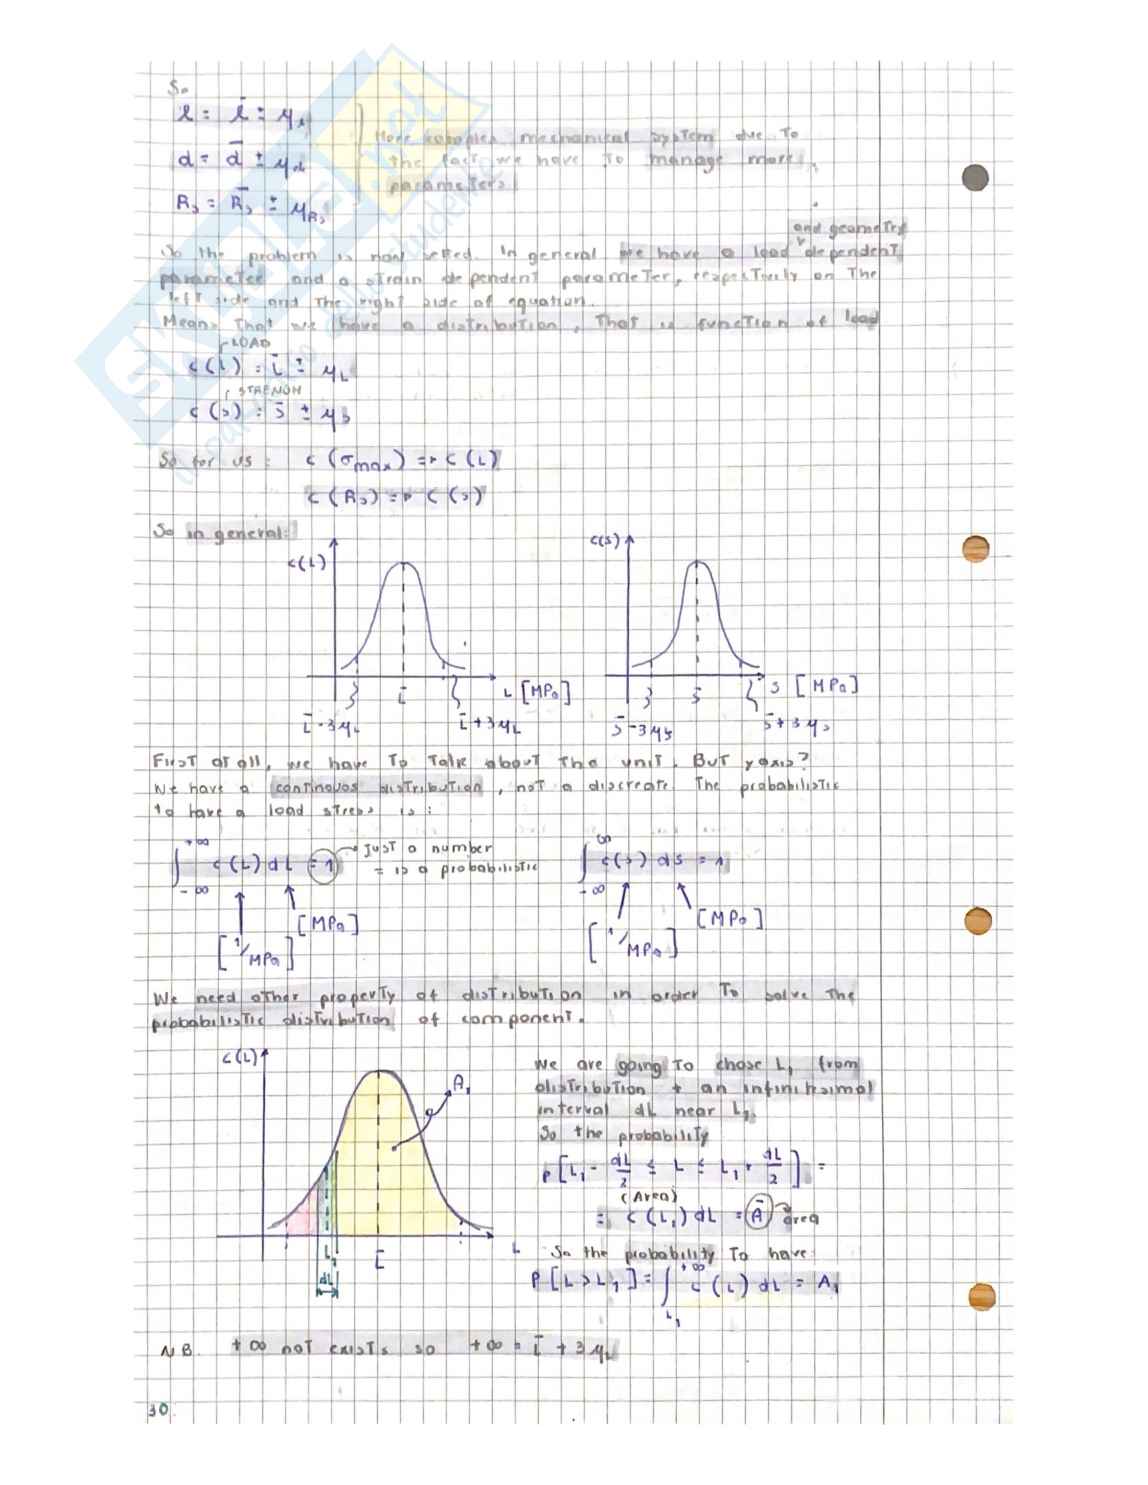 So
l = l̄ ± μl
d = d̄ ± μd
Rs = R̄s ± μRs
More complex mechanical system due to
the fact we have to manage more
parameters
and geometry
So the problem is now setted. In general we have a load dependent
parameter and a strain dependent parameter, respectively on the
left side and the right side of equation.
Means that we have a distribution, that is function of load
LOAD
c(L) = L̄ ± μL
STRENGH
c(s) = s̄ ± μs
So for us: c(σmax) => c(L)
c(Rs) => c(s)
So in general:
c(L)
c(s)
L̄ L [MPa]
s̄ s [MPa]
L̄-3μL L̄+3μL
s̄-3μs s̄+3μs
First of all, we have to talk about the unit. But y axis?
We have a continuos distribution, not a discreate. The probabilistic
to have a load stress is:
∫ +∞ -∞ c(L) dL = 1 → just a number
= is a probabilistic
∫ ∞ -∞ c(s) ds = 1
[MPa] [MPa]
[1/MPa] [1/MPa]
We need other property of distribution in order to solve the
probabilistic distribution of component.
c(L)
A1
L1
dL
L̄
L
We are going to chose L1 from
distribution + an infinitesimal
interval dL near L1.
So the probability
P[L1 - dL/2 ≤ L ≤ L1 + dL/2] =
(Area)
= c(L1) dL = Ā → area
So the probability to have:
P[L>L1] = ∫ +∞ L1 c(L) dL = A1
NB. +∞ not exists so +∞ = L̄ + 3μL
30.